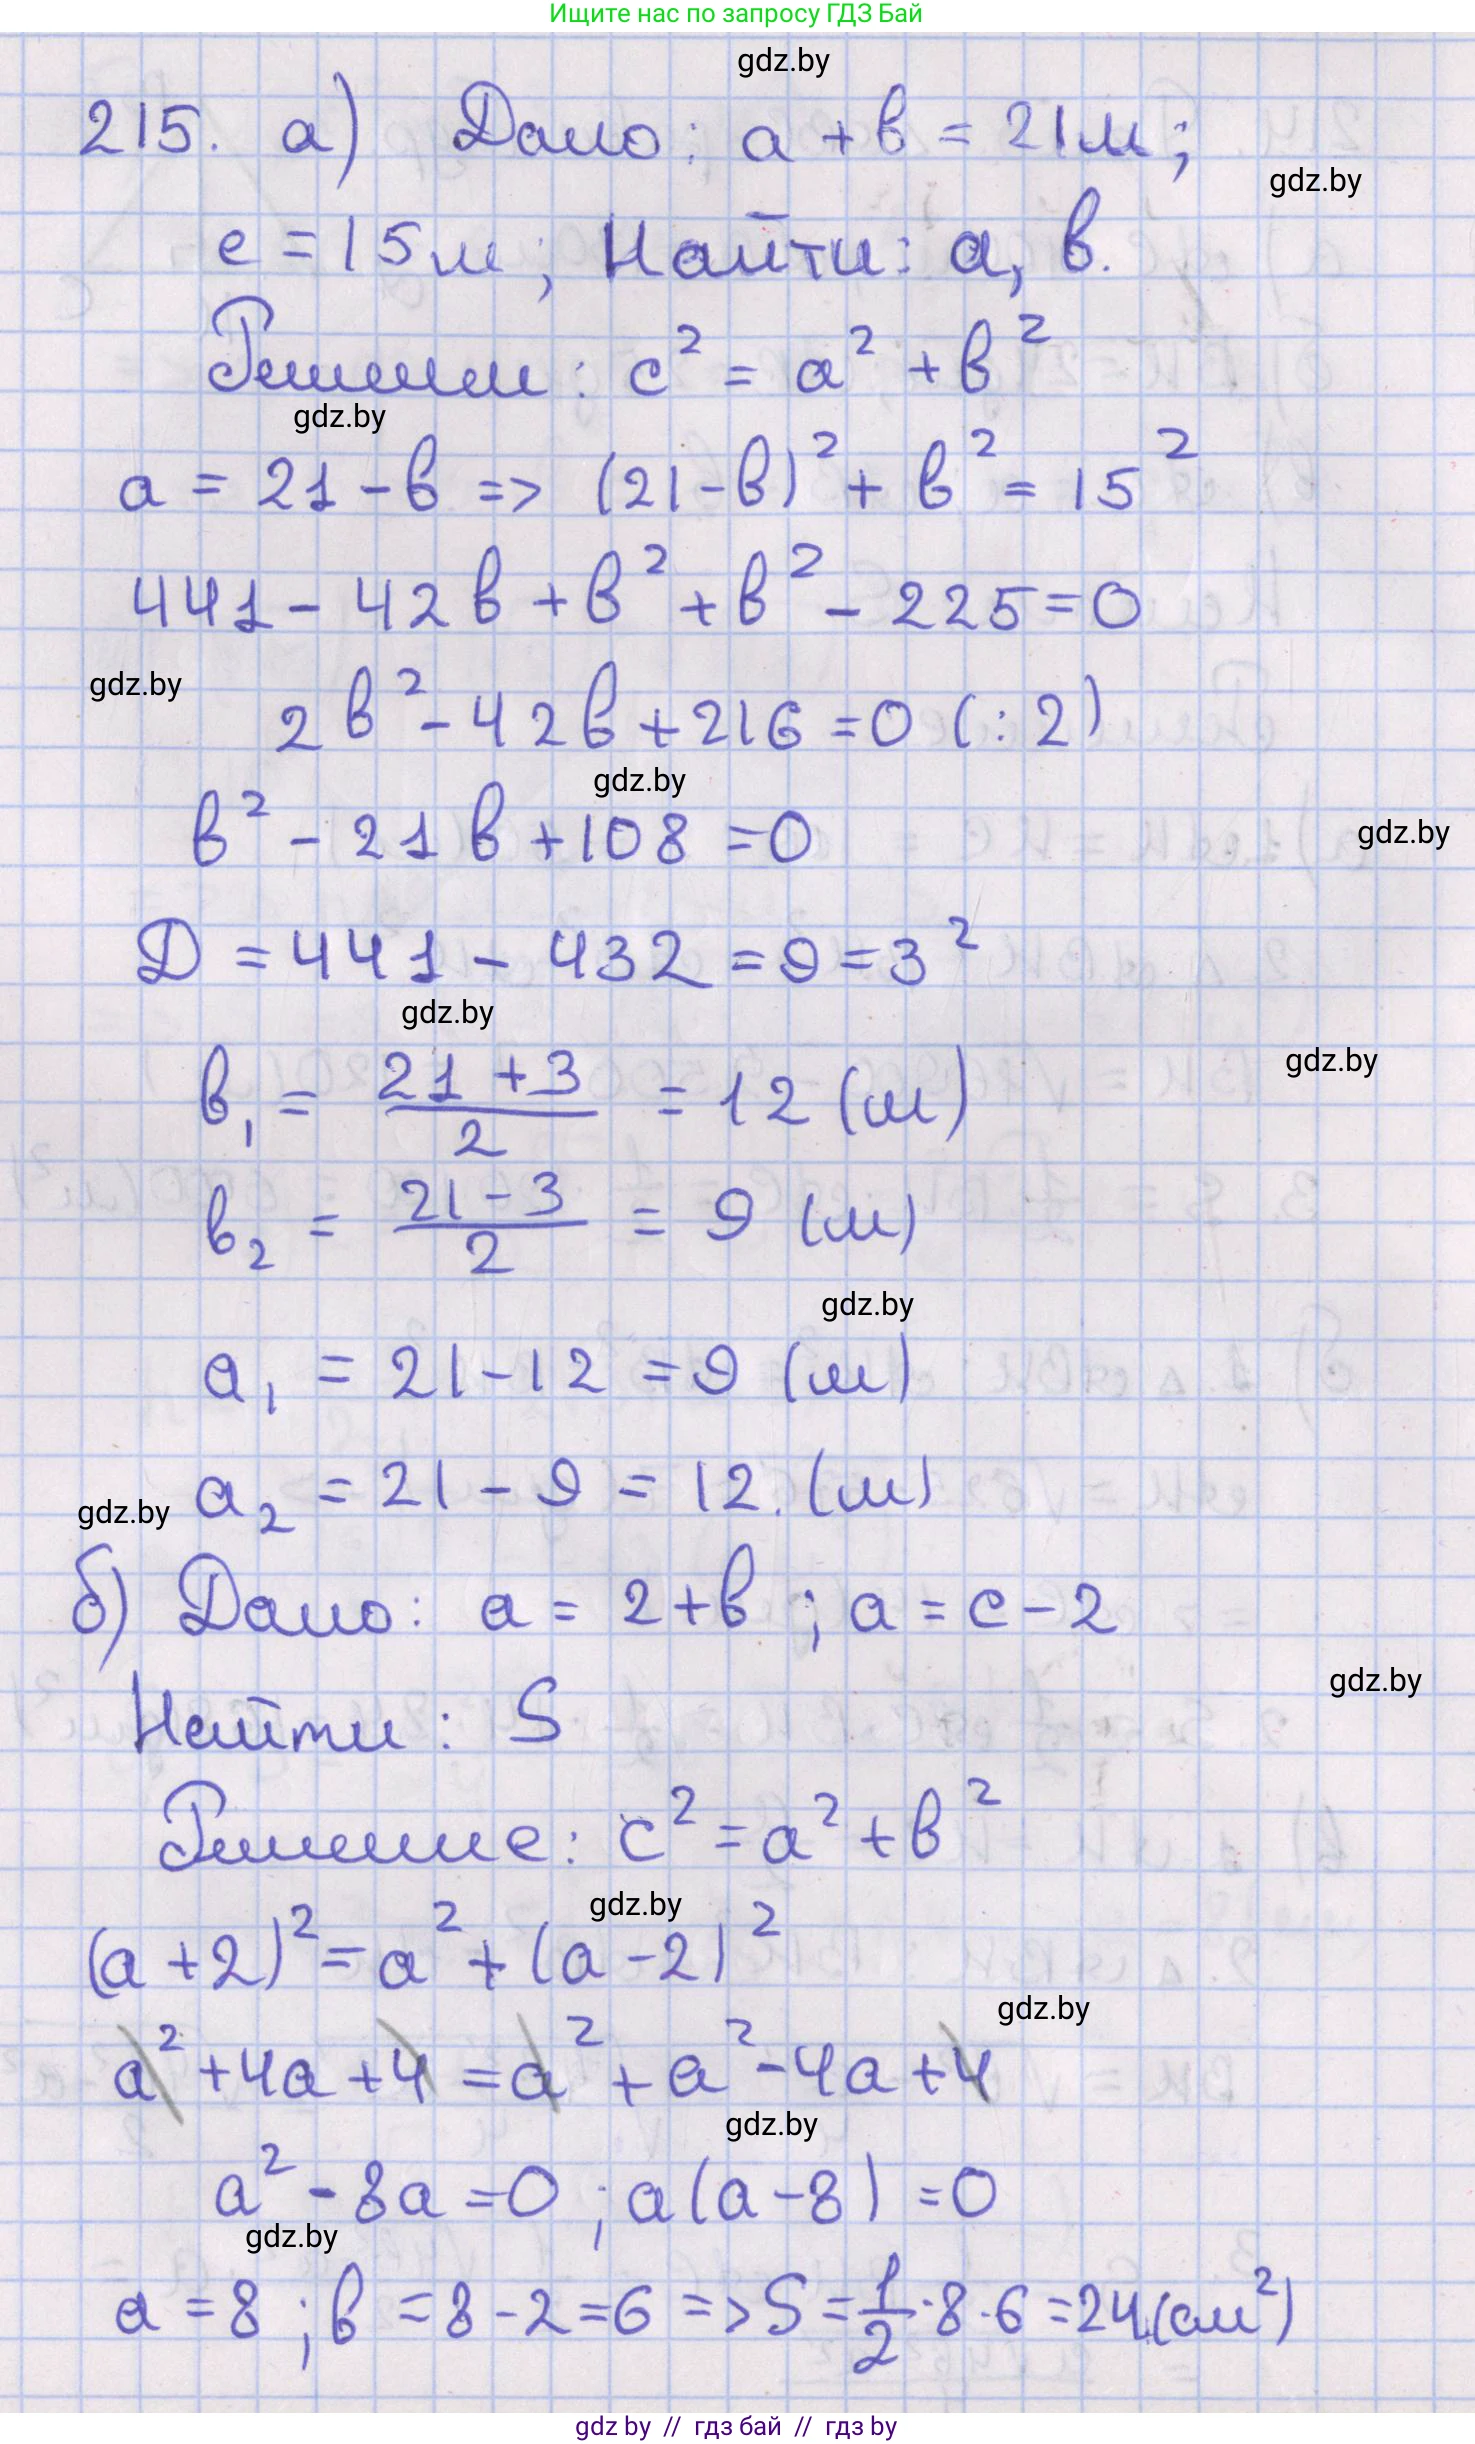 Ищите нас по запросу ГДЗ Бай
gdz.by
215. а) Дано: a + b = 21м;
gdz.by
c = 15м; Найти: a, b.
Решение: c² = a² + b²
gdz.by
a = 21 - b => (21-b)² + b² = 15²
441 - 42b + b² + b² - 225 = 0
gdz.by
2b² - 42b + 216 = 0 (:2)
gdz.by
b² - 21b + 108 = 0
gdz.by
Д = 441 - 432 = 9 = 3²
gdz.by
b₁ = (21 + 3)/2 = 12 (м)
gdz.by
b₂ = (21 - 3)/2 = 9 (м)
gdz.by
a₁ = 21 - 12 = 9 (м)
a₂ = 21 - 9 = 12. (м)
gdz.by
б) Дано: a = 2 + b ; a = c - 2
gdz.by
Найти: S
Решение: c² = a² + b²
gdz.by
(a + 2)² = a² + (a - 2)²
gdz.by
a² + 4a + 4 = a² + a² - 4a + 4
gdz.by
a² - 8a = 0 ; a(a - 8) = 0
gdz.by
a = 8 ; b = 8 - 2 = 6 => S = 1/2 · 8 · 6 = 24 (см²)
gdz by // гдз бай // гдз by